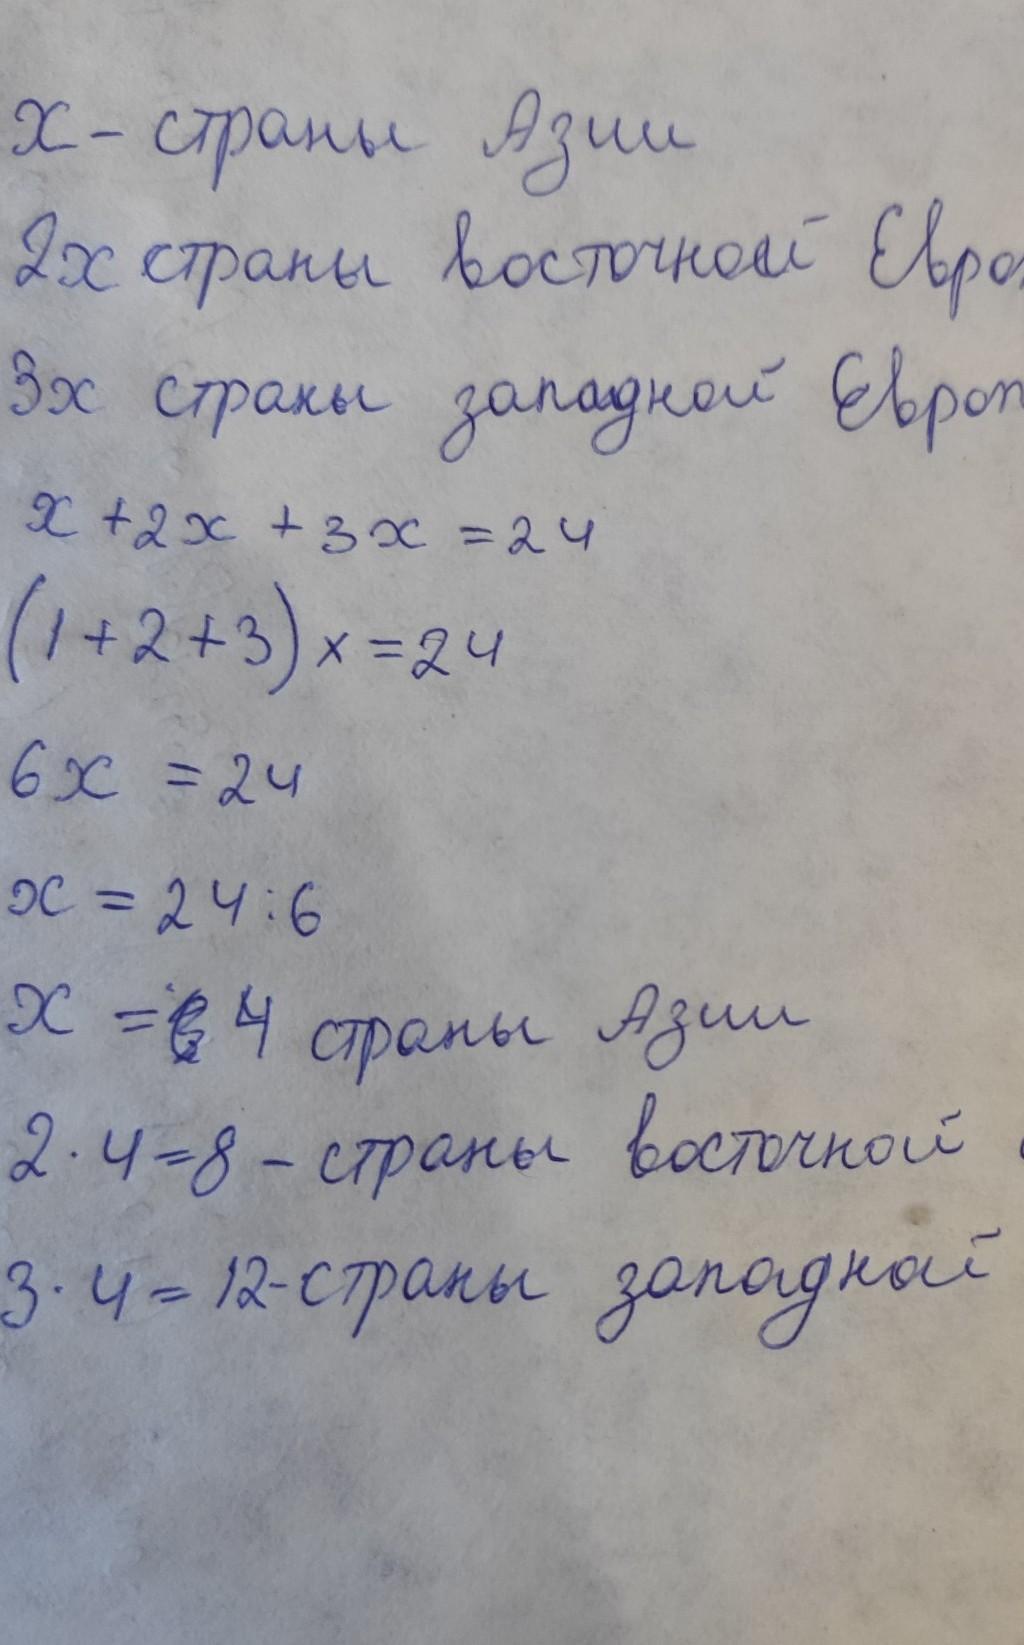 х - страны Азии
2х страны восточной Евро
3х страны западной Европ
х + 2х + 3х = 24
(1 + 2 + 3) х = 24
6х = 24
х = 24 : 6
х = 4 страны Азии
2 · 4 = 8 - страны восточной
3 · 4 = 12 - страны западной